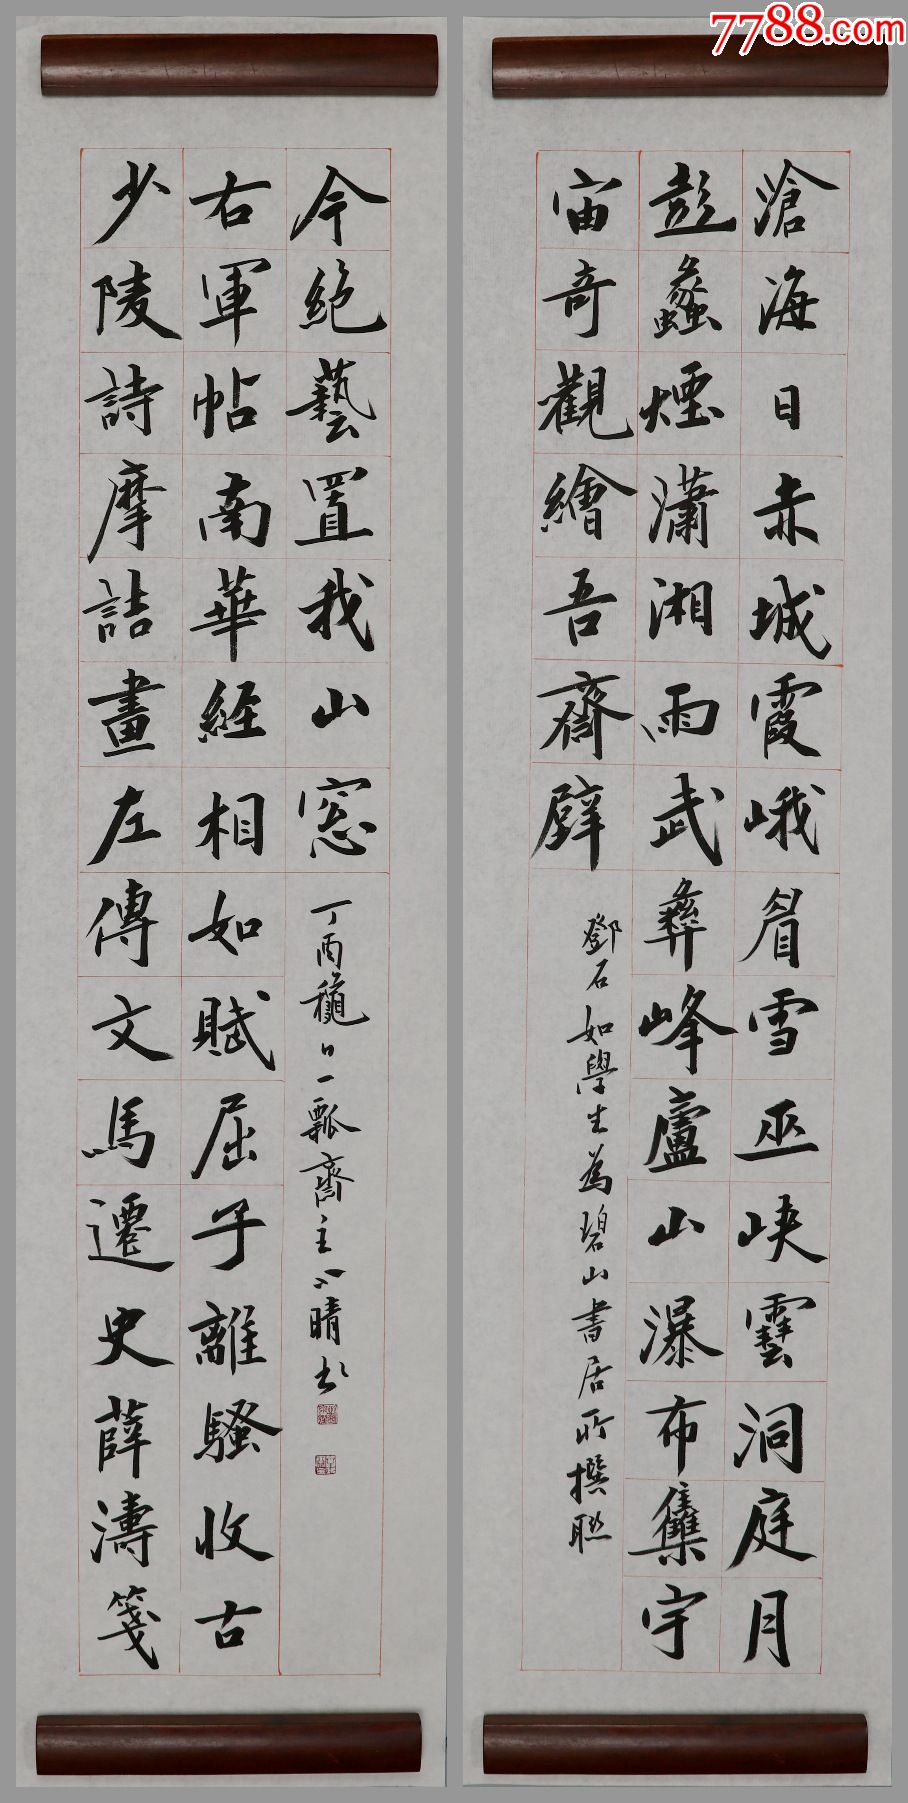 7788.com
滄海日赤城霞峨眉雪巫峽雲洞庭月
彭蠡煙瀟湘雨武彝峰廬山瀑布集宇
宙奇觀繪吾齋壁
鄧石如學生為碧山書居所撰聯
少陵詩摩詰畫左傳文馬遷史薛濤箋
右軍帖南華經相如賦屈子離騷收古
今絕藝置我山窻
丁酉龝日一瓢齋主晴书